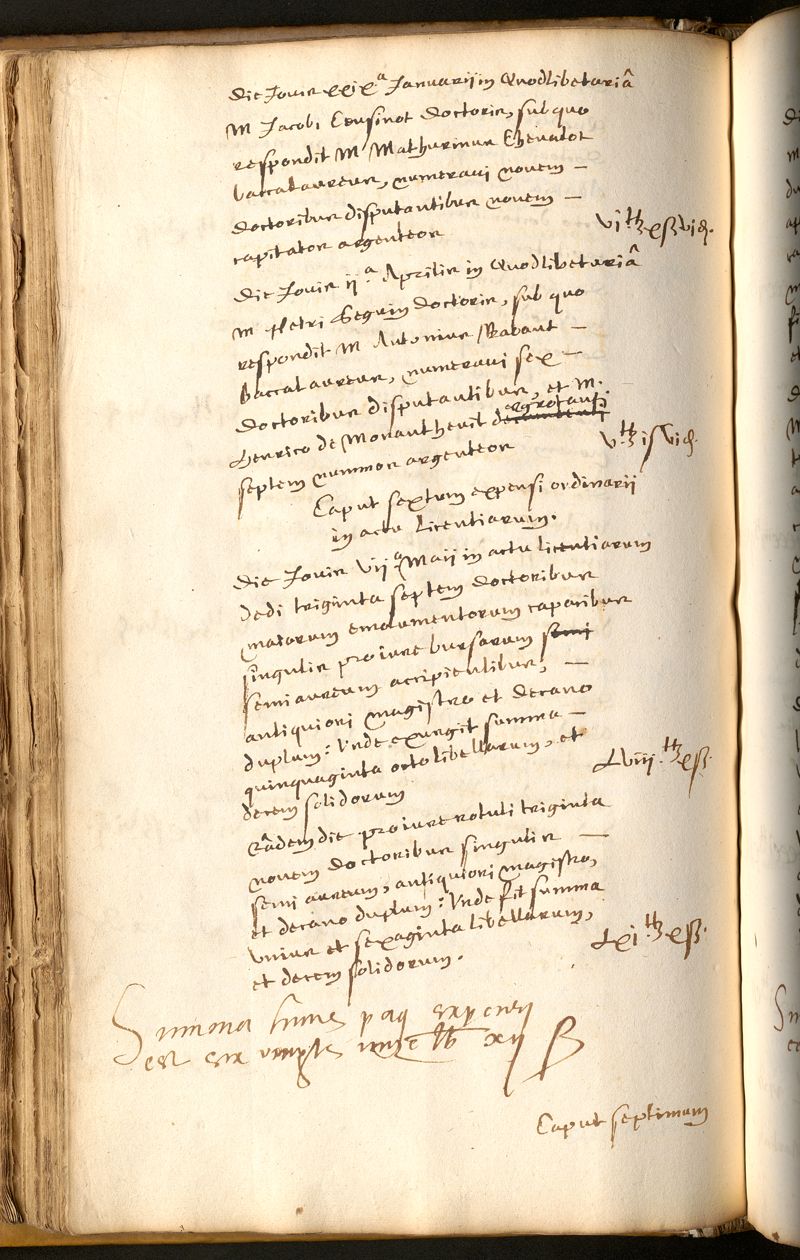 Die Jovis xxixa Januarii in Quodlibetariâ
M Jacobi Cousinot doctoris, sub quo
respondit M Mathurinus Chevalot
baccalaureus, numeravi novem –
doctoribus disputantibus novem –
capitatos argenteos
vi tt xß vi d.
Die Jovis ii a Aprilis in Quodlibetariâ
M Petri Seguin doctoris, sub quo
respondit M Antonius Rabaut –
Baccalaureus, numeravi sex –
doctoribus disputantibus, et M.
ægrotanti
Henrico de Monantheuil decumbenti
septem nummos argenteos
v tt iß vi d.
Caput sextum expensi ordinarii
in actu Licentiarum.
Die Jovis vii a Maii in actu licentiarum
Dedi triginta septem doctoribus
maiorum emolumentorum capacibus
singulis pro iure bursarum semi
semiaureum accipientibus, –
antiquiori magistro et decano
duplum: Unde exurgit summa –
quinquaginta octo libellarum, et
decem solidorum
Lviii tt xß.
Eâdem die pro iure rotuli triginta
novem doctoribus singulis –
semi aureum, antiquiori magistro,
et decano duplum: Unde fit summa
unius et sexaginta libellarum,
et decem solidorum.
Lxi tt xß.
Summa
est
Caput septimum